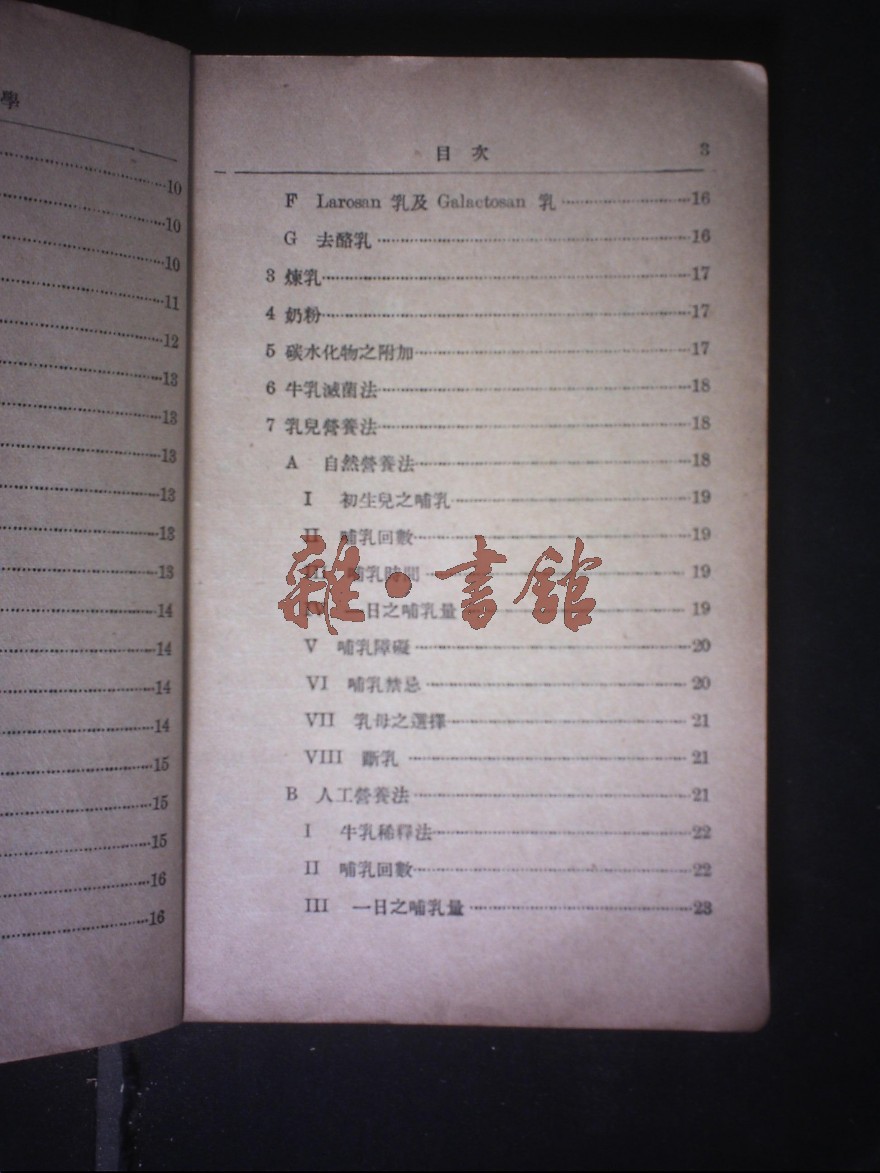 學
10
10
10
11
12
13
13
13
13
13
13
14
14
14
14
15
15
15
16
16
目次 3
F Larosan 乳及 Galactosan 乳 16
G 去酪乳 16
3 煉乳 17
4 奶粉 17
5 碳水化物之附加 17
6 牛乳滅菌法 18
7 乳兒營養法 18
A 自然營養法 18
I 初生兒之哺乳 19
II 哺乳回數 19
III 哺乳時間 19
IV 一日之哺乳量 19
雜·書館
V 哺乳障礙 20
VI 哺乳禁忌 20
VII 乳母之選擇 21
VIII 斷乳 21
B 人工營養法 21
I 牛乳稀釋法 22
II 哺乳回數 22
III 一日之哺乳量 23